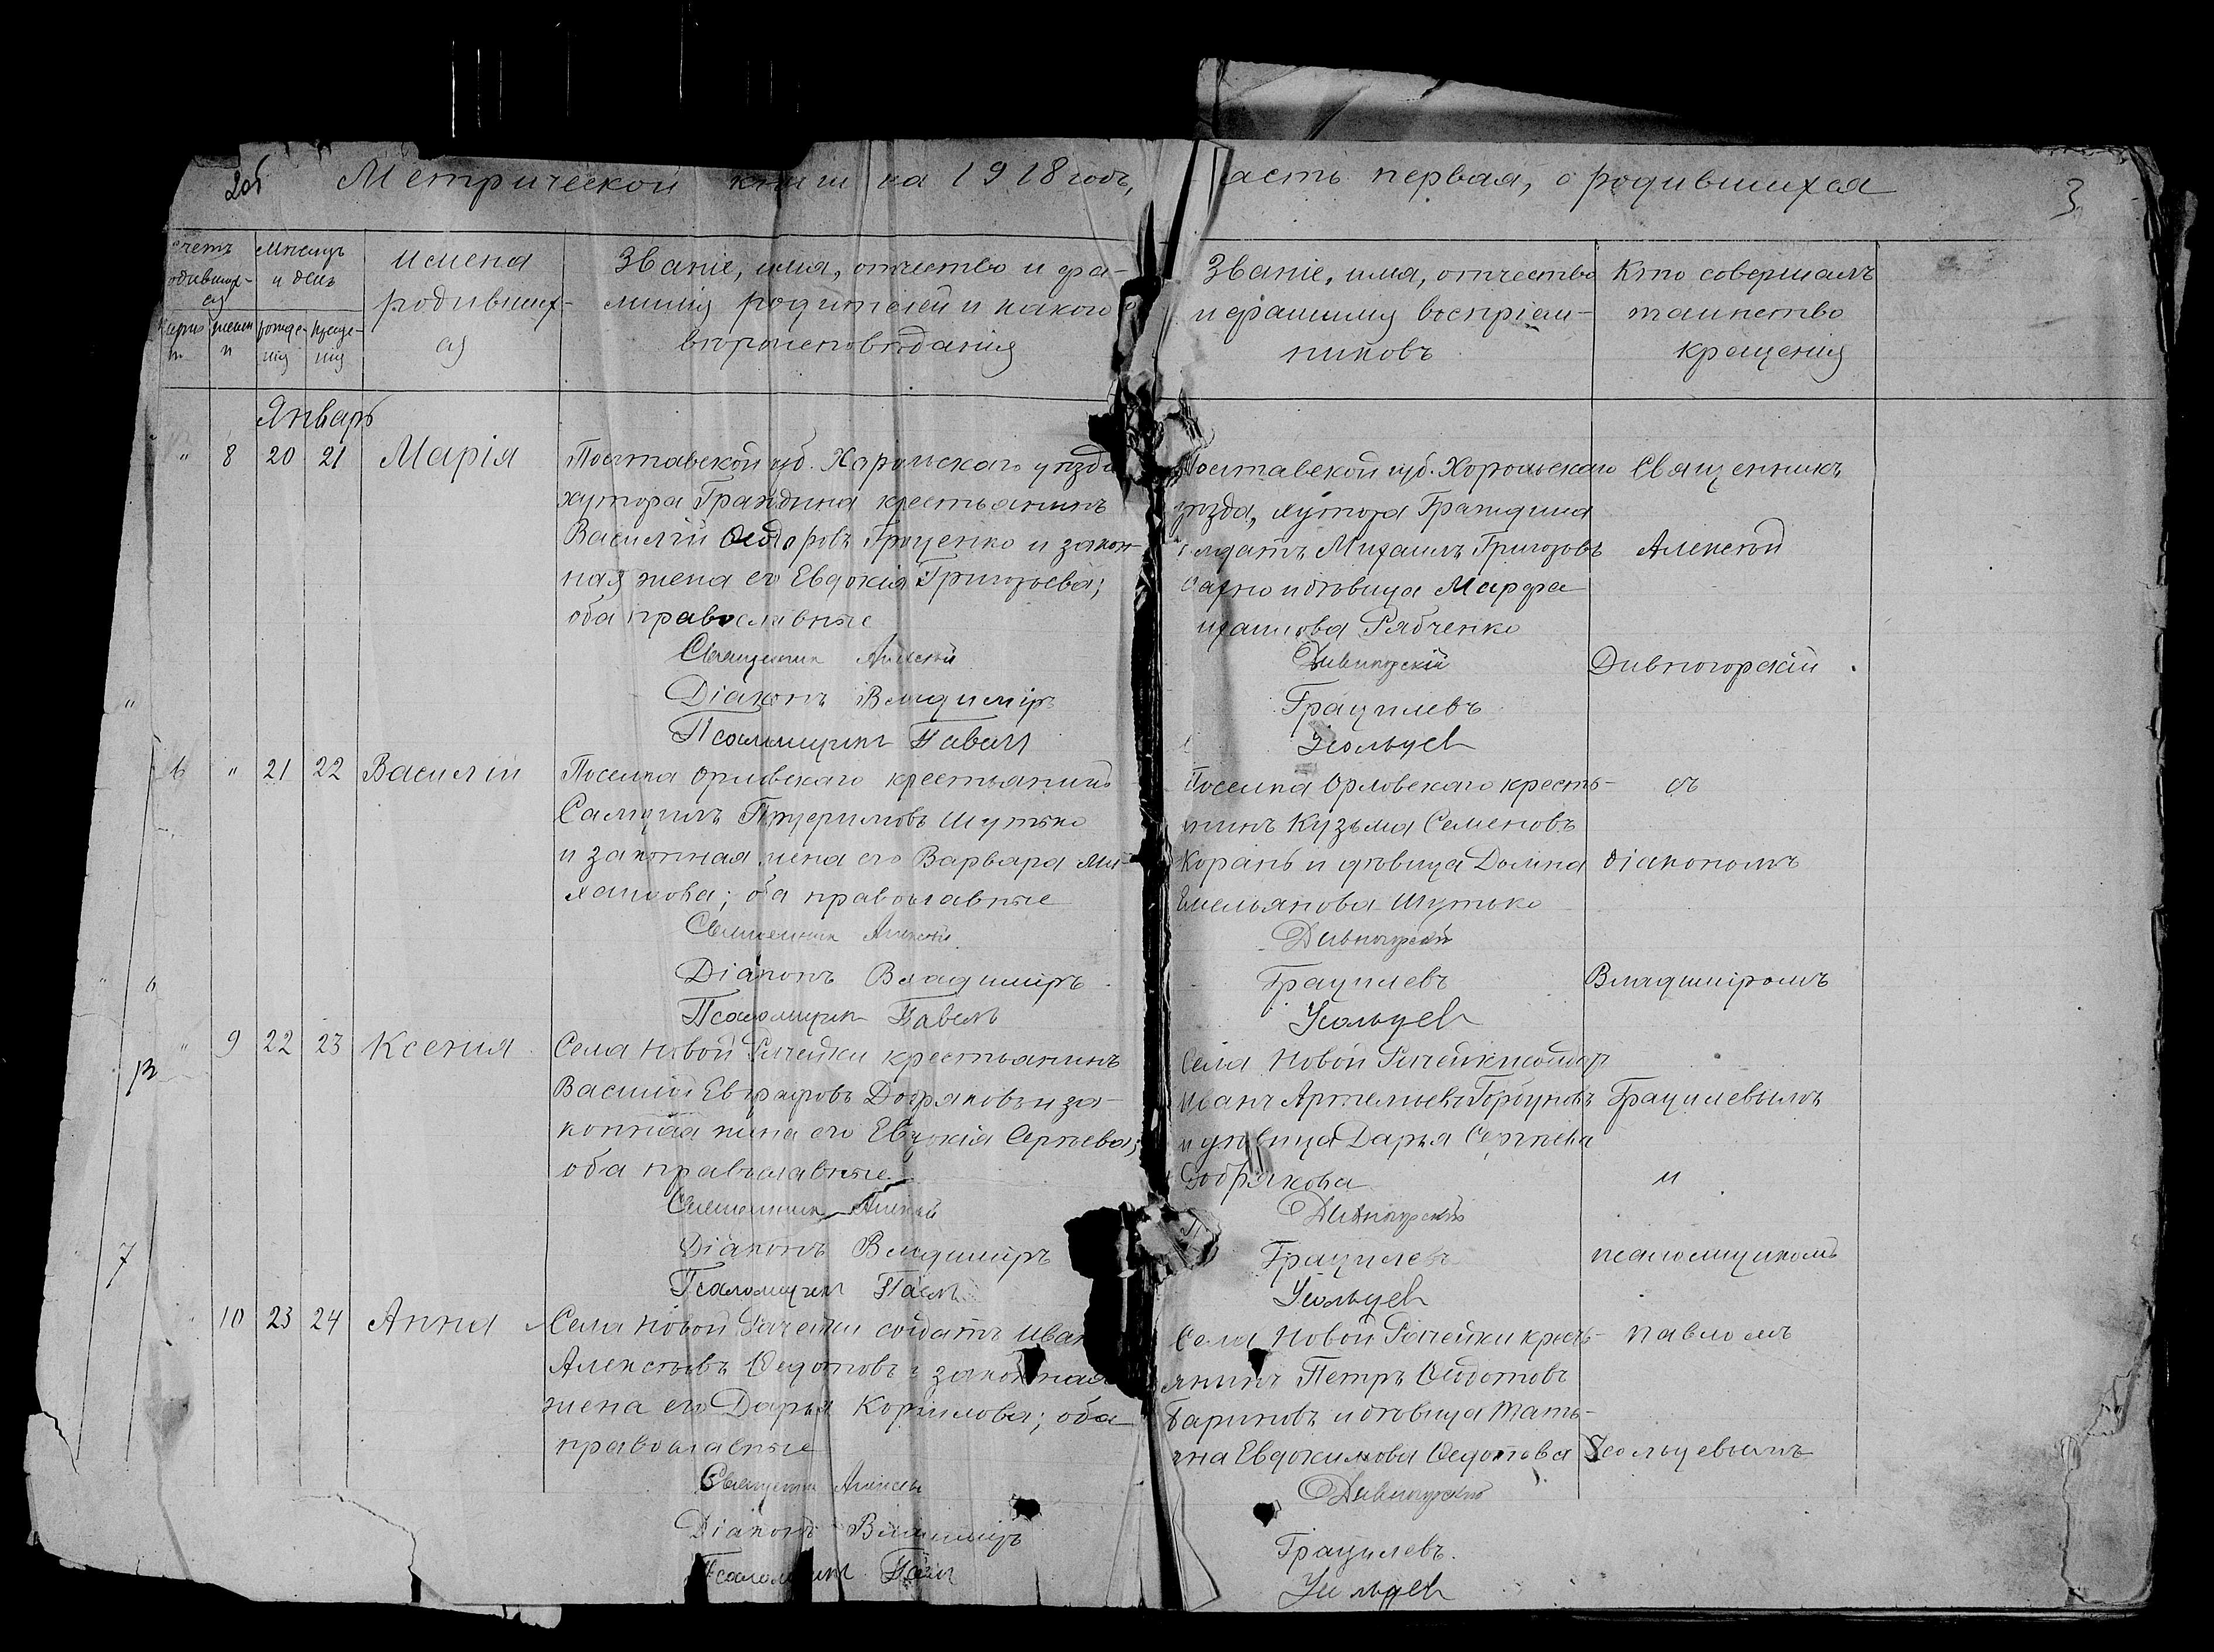 2об Метрической книги на 1918 годъ, часть первая, о родившихся 3
Мѣсяцъ
и день
имена
родивших-
ся
Званіе, имя, отчество и фа-
милія родителей и какого
вѣроисповѣданія
Званіе, имя, отчество
и фамилия воспріем-
никовъ
Кто совершалъ
таинство
крещения
Январь
" 8 20 21 Марія
Полтавской губ. Хорольскаго уѣзда
хутора Гранд­ина крестьянинъ
Василій Ѳедоровъ Проценко и закон-
ная жена его Евдокія Григорьева;
оба православные
Священник Алексей
Діаконъ Владиміръ
Псаломщик Павел
Полтавской губ. Хорольскаго
уѣзда, хутора
Михаилъ Григорьевъ
и дѣвица Марфа
Рябченко
Дивногорскій
Грацилевъ
Усольцев
Священникъ
Алексѣй
Дивногорскій
6 " 21 22 Василій
Поселка Орловскаго крестьянинъ
Самуилъ Шутько
и законная жена его Варвара Ми-
хаилова; оба православные
Священник Алексей
Діаконъ Владиміръ
Псаломщик Павелъ
Поселка Орловскаго кресть-
янинъ Кузьма Семеновъ
Корань и дѣвица Домна
Емельянова Шутько
Дивногорский
Грацилевъ
Усольцев
съ
діакономъ
Владиміромъ
" 9 22 23 Ксения
Села Новой Рачейки крестьянинъ
Василій Евграфовъ Добряковъ и за-
конная жена его Евдокія Сергѣева;
оба православные
Священник Алексей
Діаконъ Владиміръ
Псаломщик Павелъ
Села Новой Рачейки солдат
Иванъ Артемьевъ Горбуновъ
и дѣвица Дарья Сергѣева
Добрякова
Дивногорскій
Грацилевъ
Усольцев
Грацилевымъ
и
псаломщикомъ
10 23 24 Анна
Села Новой Рачейки солдатъ Иван
Алексѣевъ Ѳедотовъ и законная
жена его Дарья Корнилова; оба
православные
Священник Алексей
Діаконъ Владиміръ
Псаломщик Павел
Села Новой Рачейки кресть-
янинъ Петръ Ѳедотовъ
Бариновъ и дѣвица Тать-
яна Евдокимова Ѳедотова
Дивногорский
Грацилевъ.
Усольцев
Павломъ
Усольцевымъ
7